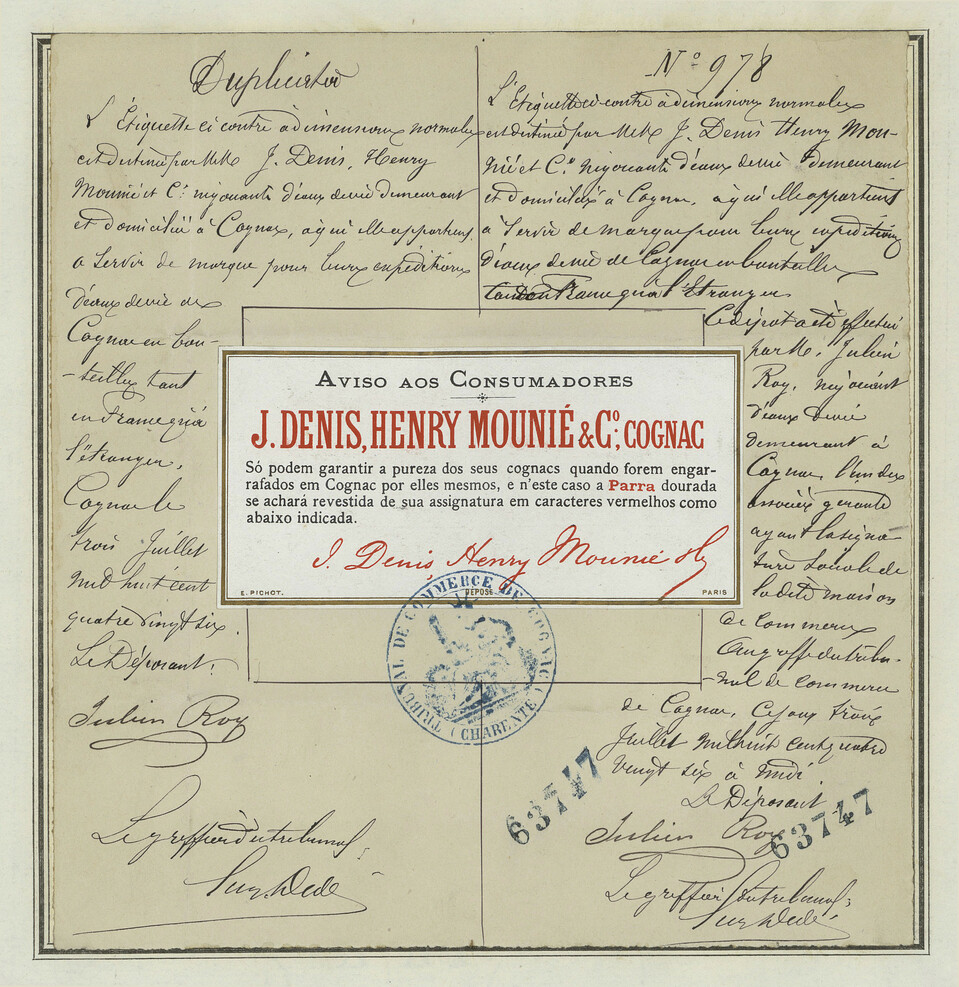 Duplicata
L'Étiquette ci contre à dimensions normales
est destinée par MM J. Denis, Henry
Mounié et Cº négociants d'eaux de vie demeurant
et domiciliés à Cognac, à qui elle appartient
a servir de marque pour leurs expéditions
d'eaux de vie de
Cognac en bou-
-teilles tant
en France qu'à
l'étranger.
Cognac le
trois Juillet
mil huit cent
quatre vingt six.
Le Déposant:
Julien Roy
Le greffier du tribunal:
Nº 978
L'Étiquette ci contre à dimensions normales
est destinée par MM J. Denis Henry Mou-
nié et Cº négociants d'eaux de vie demeurant
et domiciliés à Cognac, à qui elle appartient
à servir de marque pour leurs expéditions
d'eaux de vie de Cognac en bouteilles
tant en France qu'à l'étranger
Ce dépôt a été effectué
par M. Julien
Roy, négociant
d'eaux de vie
demeurant à
Cognac, l'un des
associés gérants
ayant la signa-
ture sociale de
la dite maison
de commerce
au greffe du tribu-
-nal de commerce
de Cognac, ce jour trois
Juillet mil huit cent quatre
vingt six à midi
Le Déposant
Julien Roy
Le greffier du tribunal:
AVISO AOS CONSUMADORES
J. DENIS, HENRY MOUNIÉ & Cº, COGNAC
Só podem garantir a pureza dos seus cognacs quando forem engar-
rafados em Cognac por elles mesmos, e n'este caso a Parra dourada
se achará revestida de sua assignatura em caracteres vermelhos como
abaixo indicada.
J. Denis, Henry Mounié & Cy
E. PICHOT. DÉPOSÉ PARIS
TRIBUNAL DE COMMERCE DE COGNAC (CHARENTE)
63747
63747